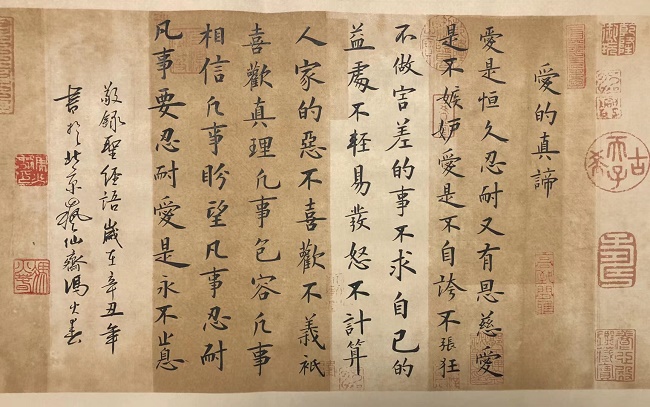 愛的真諦
愛是恒久忍耐又有恩慈愛
是不嫉妒愛是不自誇不張狂
不做害羞的事不求自己的
益處不輕易發怒不計算
人家的惡不喜歡不義衹
喜歡真理凡事包容凡事
相信凡事盼望凡事忍耐
凡事要忍耐愛是永不止息
敬録聖經語歲在辛丑年
書於北京仙齋馮火春
古希天子